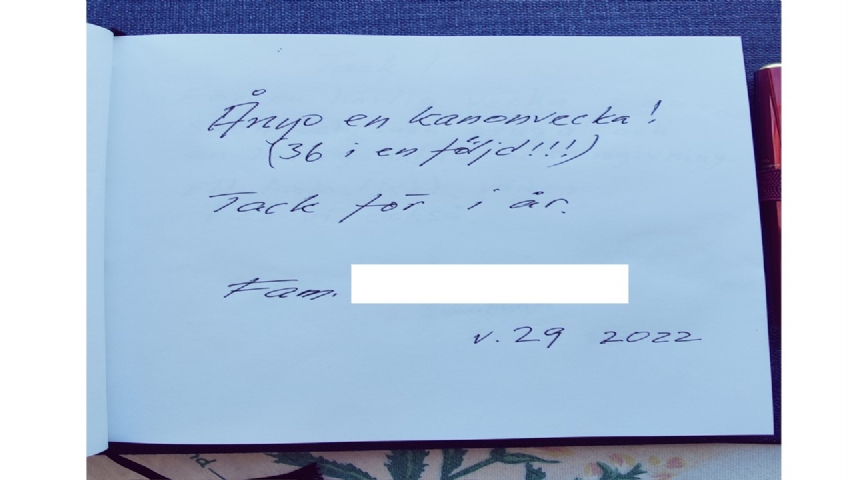 Ånyo en kanonvecka!
(36 i en följd!!!)
Tack för i år.
Fam.
v. 29 2022